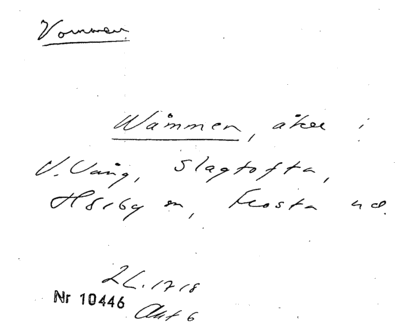 Vommen
Wåmmen, åker i
V. Vång, Slagtofta,
Hörby sn, Frosta hd.
2L. 1718
Nr 10446
Akt 6